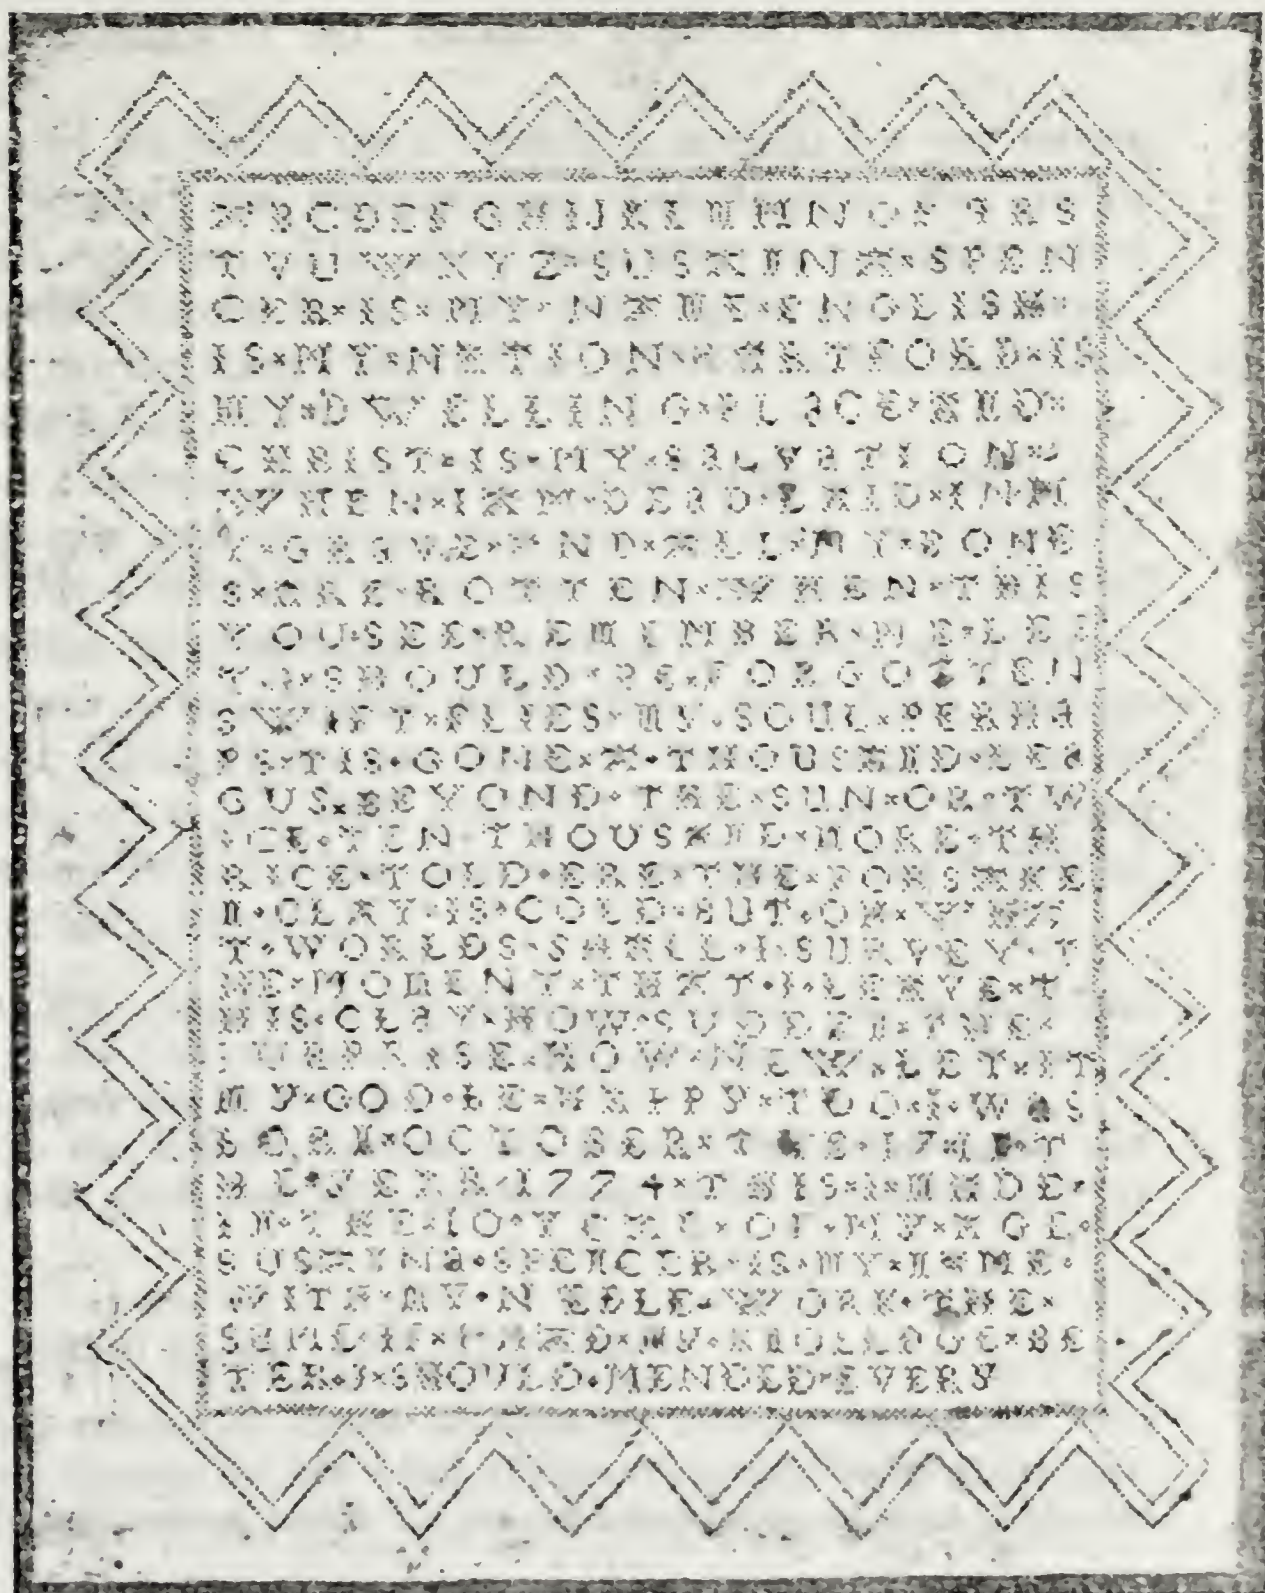 ABCDEFGHIJKLMMNOP QRS
TVUWXYZ×SUSAINA×SPEN
CER×IS×MY×NAME×ENGLISH×
IS×MY×NETION×HARTFORD×IS
MY×DWELLING×PLACE×AND×
CHRIST×IS×MY×SALVATION×
WHEN×I×AM×DEAD×LAID×IN×M
Y×GRAVE×AND×ALL×MY×BONE
S×ARE×ROTTEN×WHEN×THIS
YOU×SEE×REMEMBER×ME×LES
T×I×SHOULD×BE×FORGOTTEN
SWIFT×FLIES×MY×SOUL×PERHA
PS×TIS×GONE×A×THOUSAND×LEA
GUS×BEYOND×THE×SUN×OR×TW
ICE×TEN×THOUSAND×MORE×TH
RICE×TOLD×ERE×THE×FORSAKE
N×CLAY×IS×COLD×BUT×OH×WHA
T×WORLDS×SHALL×I×SURVEY×T
HE×MOMENT×THAT×I×LEAVE×T
HIS×CLAY×HOW×SUDDEN×THE×
SURPRISE×HOW×NEW×LET×IT
MY×GOD×BE×HAPPY×TOO×I×WAS
BORN×OCTOBER×THE×17×IN×T
HE×YEAR×1774×THIS×I×MADE×
IN×THE×10×YEAR×OF×MY×AGE×
SUSAINA×SPENCER×IS×MY×NAME×
WITH×MY×NEEDLE×WORK×THE×
SAME×IF××MY×KNOLLDGE×BE
TER×I×SHOULD×MENDED×EVERY